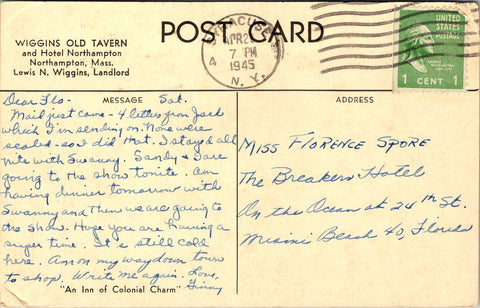 POST CARD
WIGGINS OLD TAVERN
and Hotel Northampton
Northampton, Mass.
Lewis N. Wiggins, Landlord
SYRACUSE
APR 2
7 PM
1945
N. Y.
4
UNITED
STATES
POSTAGE
1 CENT 1
MESSAGE
ADDRESS
Dear Flo- Sat.
Mail just came - 4 letters from Jack
which I'm sending on. None were
sealed - so I did that. I stayed all
nite with Swanny. Sandy & I are
going to the show tonite. Am
having dinner tomorrow with
Swanny and then we are going to
the show. Hope you are having a
super time. It is still cold
here. Am on my way down town
to shop. Write me again. Love,
Ginny
"An Inn of Colonial Charm"
Miss Florence Spore
The Breakers Hotel
On the Ocean at 24th St.
Miami Beach 40, Florida